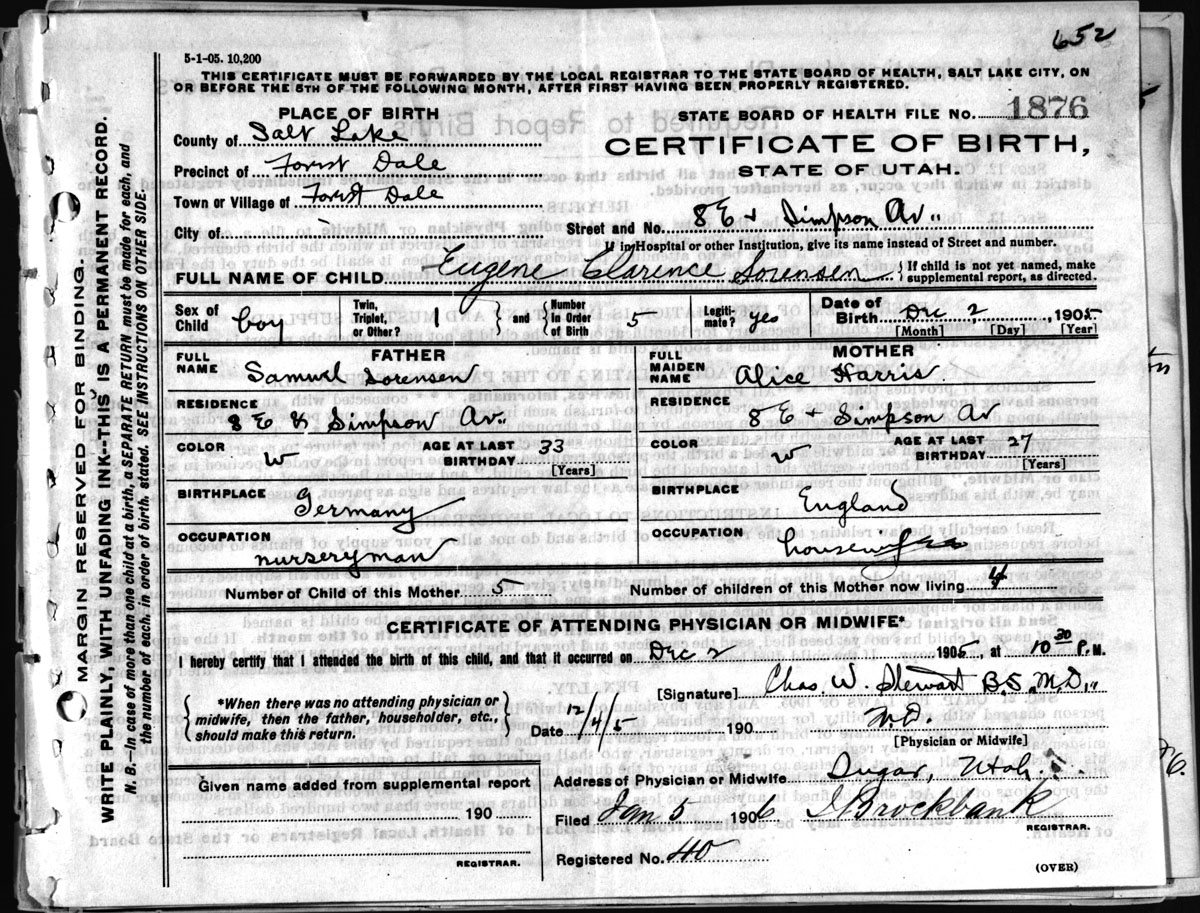 652
5-1-05. 10,200
THIS CERTIFICATE MUST BE FORWARDED BY THE LOCAL REGISTRAR TO THE STATE BOARD OF HEALTH, SALT LAKE CITY, ON
OR BEFORE THE 5TH OF THE FOLLOWING MONTH, AFTER FIRST HAVING BEEN PROPERLY REGISTERED.
PLACE OF BIRTH
County of Salt Lake
Precinct of Forest Dale
Town or Village of Forest Dale
City of
STATE BOARD OF HEALTH FILE No. 1876
CERTIFICATE OF BIRTH,
STATE OF UTAH.
Street and No. 8 E + Simpson Av.
If in Hospital or other Institution, give its name instead of Street and number.
FULL NAME OF CHILD Eugene Clarence Sorensen } If child is not yet named, make
supplemental report, as directed.
Sex of Child boy
Twin, Triplet, or Other? 1 } and { Number in Order of Birth 5
Legitimate? yes
Date of Birth Dec 2, 1905
[Month] [Day] [Year]
FATHER
FULL NAME Samuel Sorensen
RESIDENCE
8 E & Simpson Av.
COLOR W AGE AT LAST BIRTHDAY 33
[Years]
BIRTHPLACE
Germany
OCCUPATION
nurseryman
MOTHER
FULL MAIDEN NAME Alice Harris
RESIDENCE
8 E + Simpson Av
COLOR W AGE AT LAST BIRTHDAY 27
[Years]
BIRTHPLACE
England
OCCUPATION
housewife
Number of Child of this Mother 5 Number of children of this Mother now living 4
CERTIFICATE OF ATTENDING PHYSICIAN OR MIDWIFE*
I hereby certify that I attended the birth of this child, and that it occurred on Dec 2 1905, at 10 30 P. M.
{ *When there was no attending physician or
midwife, then the father, householder, etc.,
should make this return. }
[Signature] Chas. W. Stewart B.S. M.D.
Date 12/4/5 190 M.D.
[Physician or Midwife]
Given name added from supplemental report
190
REGISTRAR.
Address of Physician or Midwife Sugar, Utah
Filed Jan 5 1906 Brockbank
REGISTRAR.
Registered No. 40
(OVER)
MARGIN RESERVED FOR BINDING.
WRITE PLAINLY, WITH UNFADING INK--THIS IS A PERMANENT RECORD.
N. B.--In case of more than one child at a birth, a SEPARATE RETURN must be made for each, and
the number of each, in order of birth, stated. SEE INSTRUCTIONS ON OTHER SIDE.